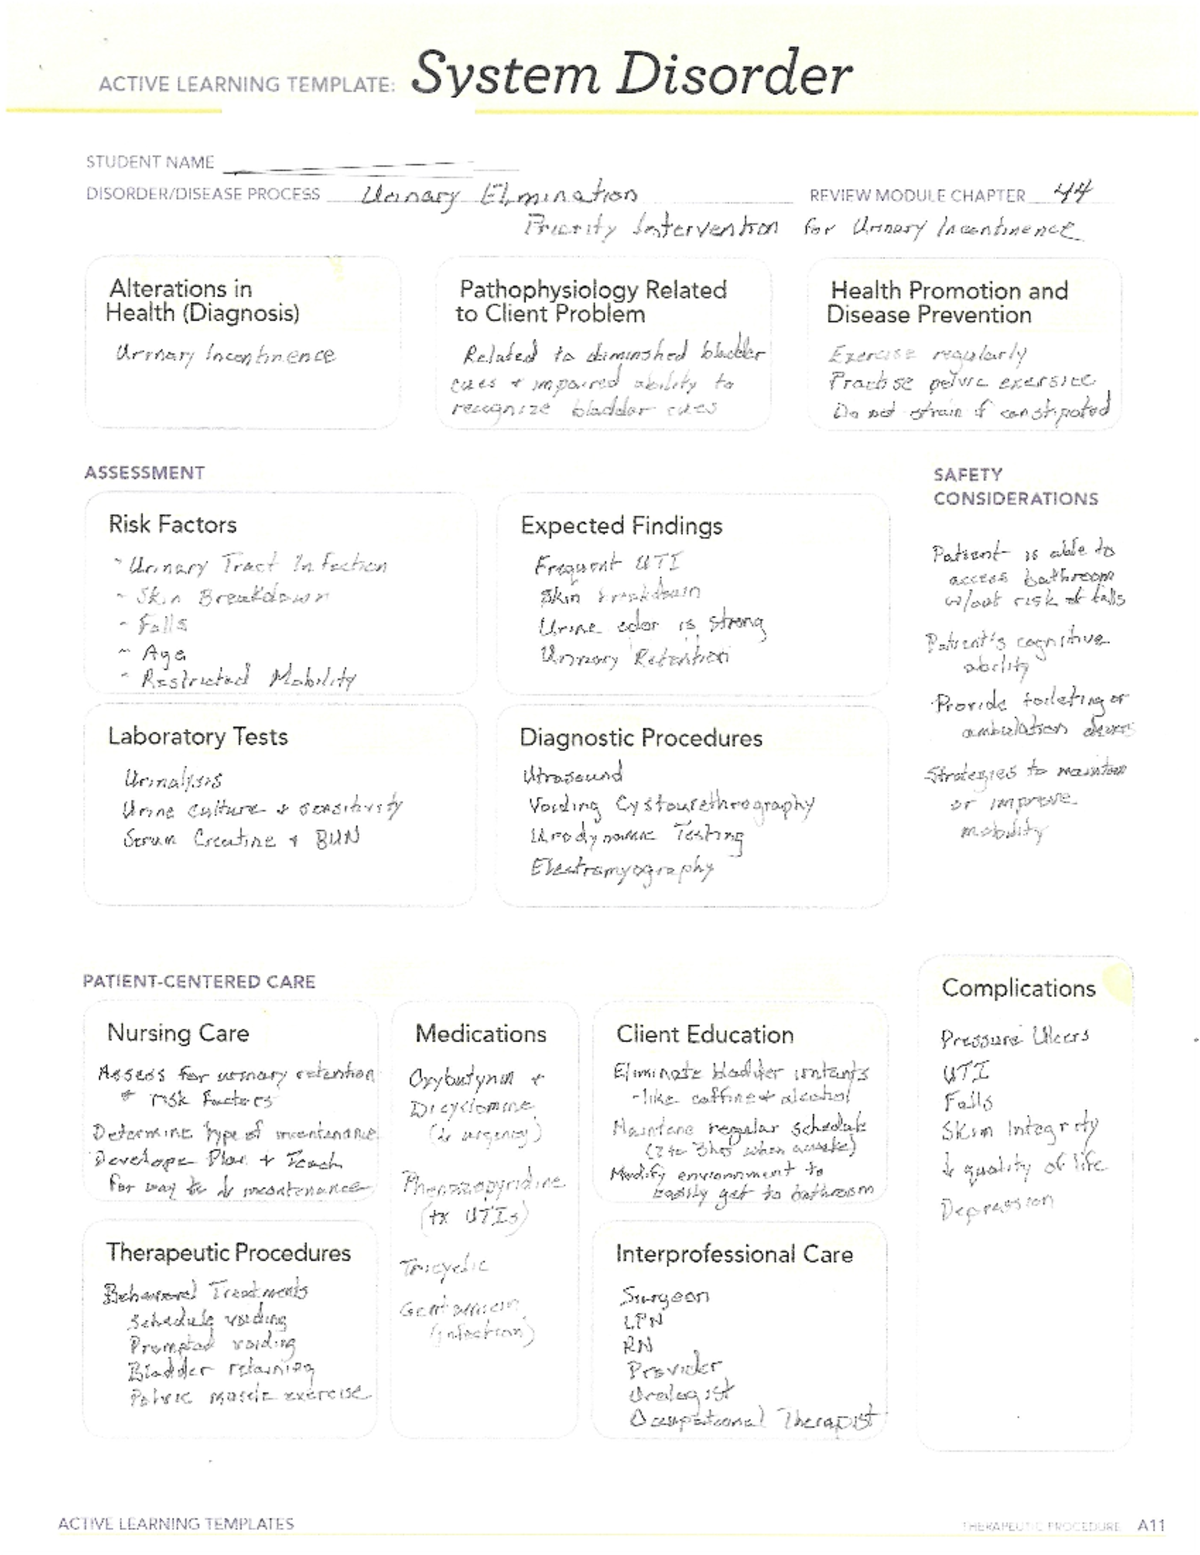 ACTIVE LEARNING TEMPLATE: System Disorder
STUDENT NAME
DISORDER/DISEASE PROCESS Urinary Elimination REVIEW MODULE CHAPTER 44
Priority Intervention for Urinary Incontinence
Alterations in
Health (Diagnosis)
Urinary Incontinence
Pathophysiology Related
to Client Problem
Related to diminished bladder
cues + impaired ability to
recognize bladder cues
Health Promotion and
Disease Prevention
Exercise regularly
Practise pelvic exersice
Do not strain if constipated
ASSESSMENT
SAFETY
CONSIDERATIONS
Risk Factors
- Urinary Tract Infection
- Skin Breakdown
- Falls
- Age
- Restricted Mobility
Expected Findings
Frequent UTI
Skin breakdown
Urine odor is strong
Urinary Retention
Patient is able to
access bathroom
w/out risk of falls
Patient's cognitive
ability
Provide toileting or
ambulation
Strategies to maintain
or improve
mobility
Laboratory Tests
Urinalysis
Urine culture + sensitivity
Serum Creatine + BUN
Diagnostic Procedures
Utrasound
Voiding Cystourethrography
Urodynamic Testing
Electromyography
PATIENT-CENTERED CARE
Nursing Care
Assess for urinary retention
+ risk factors
Determine type of incontenance
Develope Plan + Teach
for way to ↓ incontenance
Medications
Oxybutynin +
Dicyclomine
(↓ urgency)
Phenazopyridine
(tx UTIs)
Tricyclic
Gentamicin
(infection)
Client Education
Eliminate bladder irritants
-like caffine + alcohol
Maintane regular schedule
(2 to 3hrs when awake)
Modify environment to
easily get to bathroom
Complications
Pressure Ulcers
UTI
Falls
Skin Integrity
↓ quality of life
Depression
Therapeutic Procedures
Behavioral Treatments
Schedule voiding
Prompted voiding
Bladder retaining
Pelvic muscle exercise
Interprofessional Care
Surgeon
LPN
RN
Provider
Urologist
Occupational Therapist
ACTIVE LEARNING TEMPLATES
THERAPEUTIC PROCEDURE A11